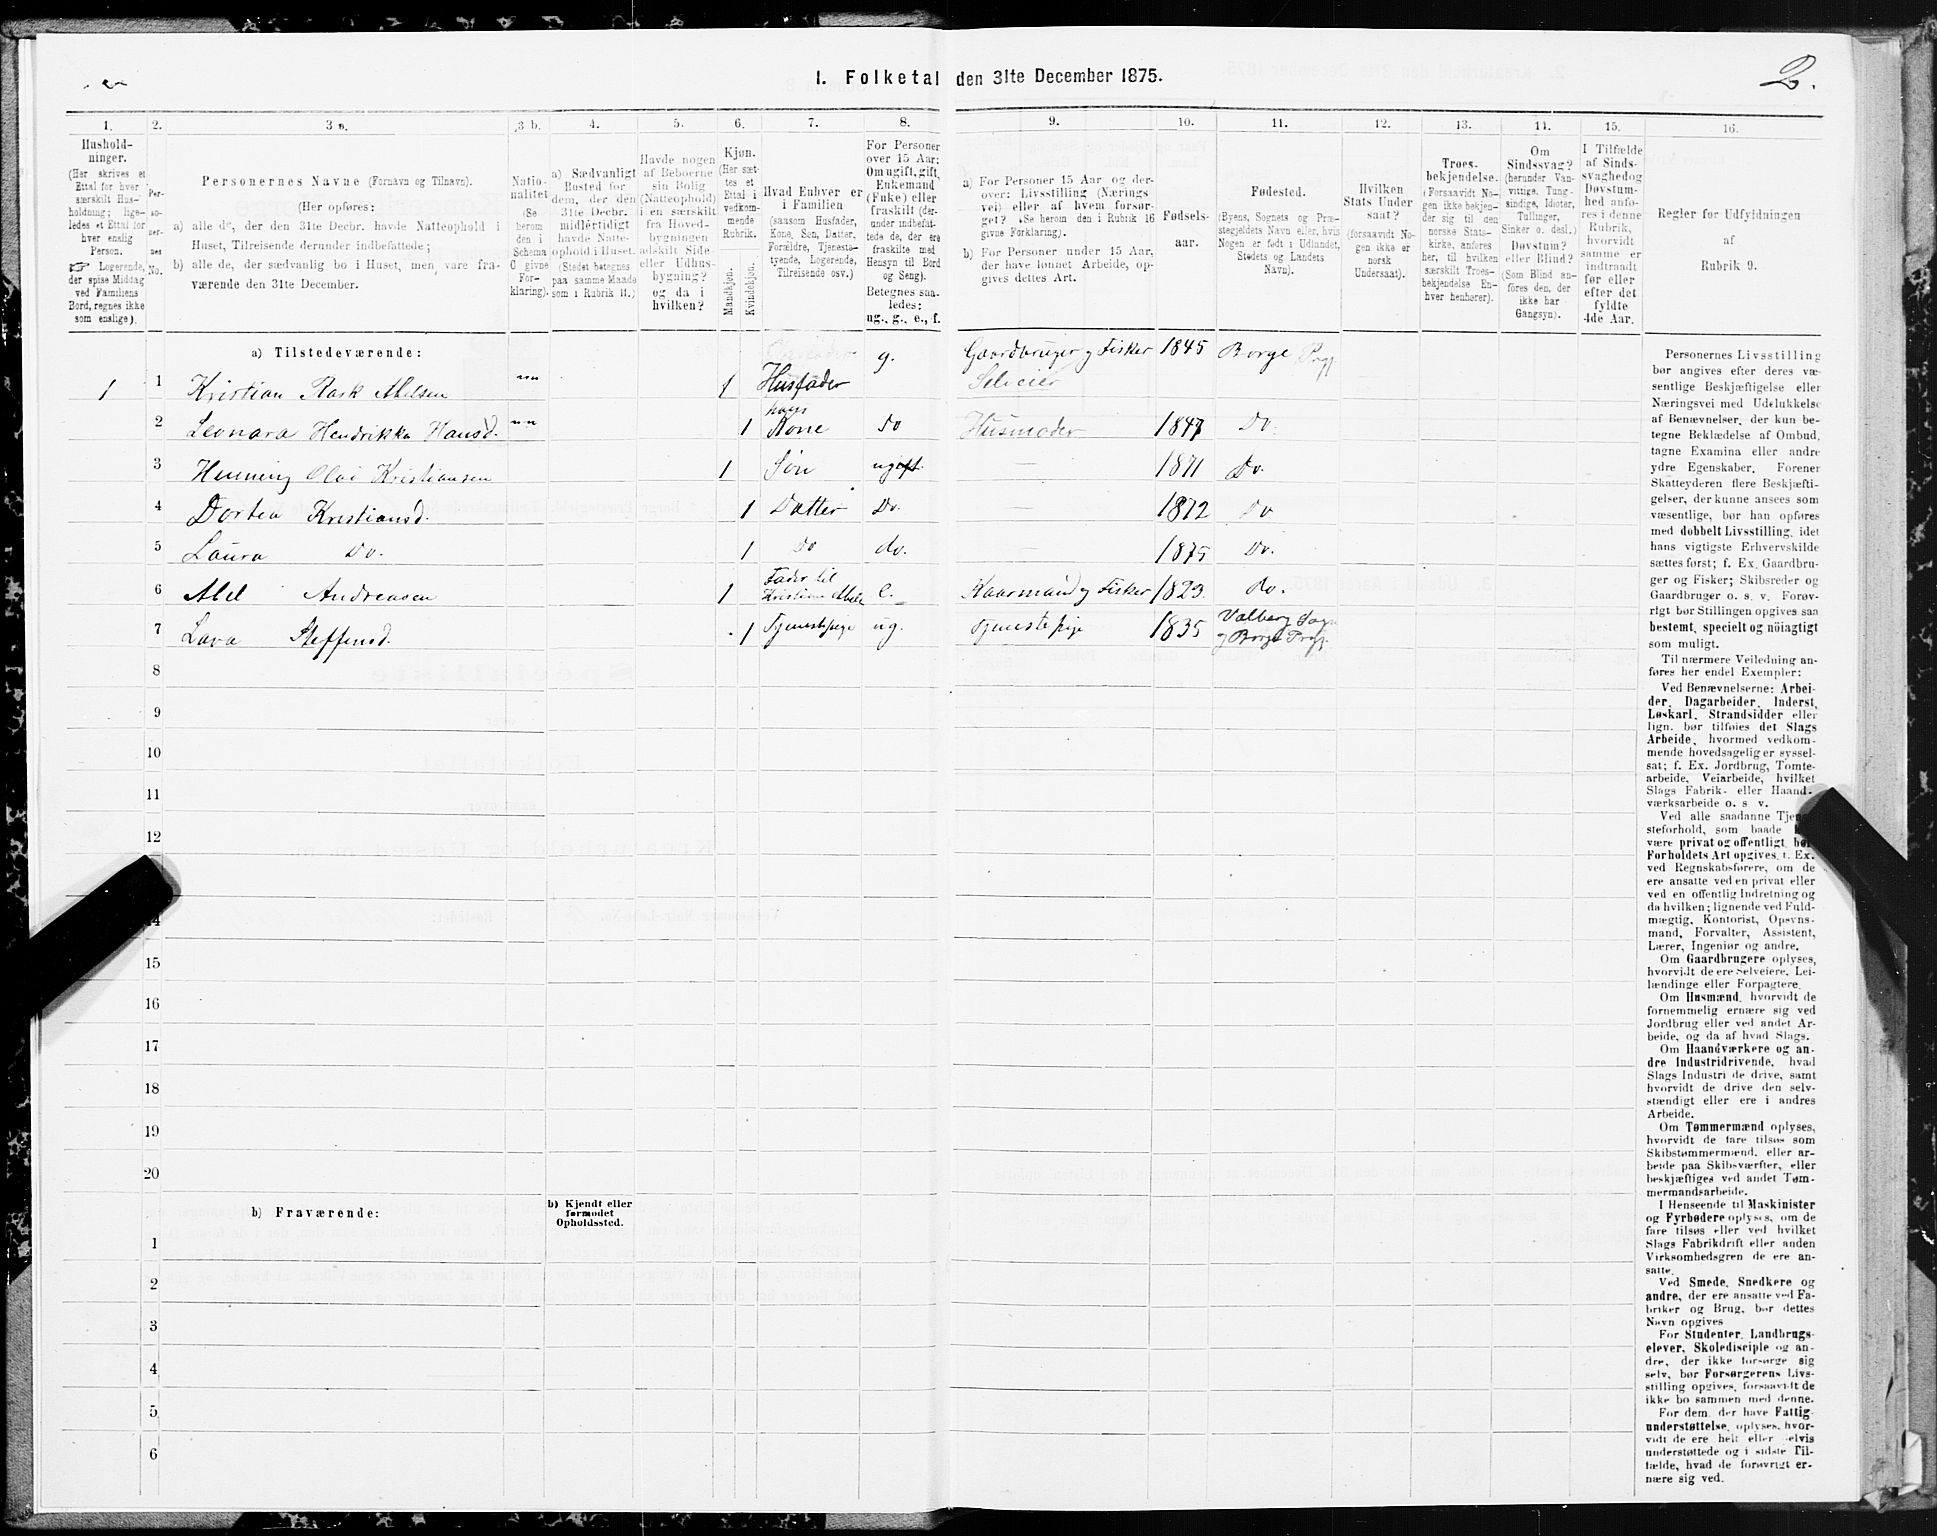 2.
I. Folketal den 31te December 1875.
1. 2. 3 a. 3 b. 4. 5. 6. 7. 8. 9. 10. 11. 12. 13. 14. 15. 16.
Hushold-
ninger.
(Her skrives et
Ettal for hver
særskilt Hus-
holdning; lige-
ledes et Ettal for
hver enslig
Person.
☞ Logerende,
der spise Middag
ved Familiens
Bord, regnes ikke
som enslige).
Per-
so-
ner-
nes
No.
Personernes Navne (Fornavn og Tilnavn).
(Her opføres:
a) alle de, der den 31te Decbr. havde Natteophold i
Huset, Tilreisende derunder indbefattede;
b) alle de, der sædvanlig bo i Huset, men vare fra-
værende den 31te December.
Natio-
nalitet
(Se
herom
den i
Schema
C givne
For-
klaring).
a) Sædvanligt
Bosted for
dem, der den
31te Decbr.
midlertidigt
havde Natte-
ophold i Huset.
(Stedet betegnes
paa samme Maade
som i Rubrik 11.)
Havde nogen
af Beboerne
sin Bolig
(Natteophold)
i en særskilt
fra Hoved-
bygningen
adskilt Side-
eller Udhus-
bygning?
og da i
hvilken?
Kjøn.
(Her sæt-
tes et
Ettal i
vedkom-
mende
Rubrik.
Mandkjøn.
Kvindekjøn.
Hvad Enhver er
i Familien
(saasom Husfader,
Kone, Søn, Datter,
Forældre, Tjeneste-
tyende, Logerende,
Tilreisende osv.)
For Personer
over 15 Aar:
Om ugift, gift,
Enkemand
(Enke) eller
fraskilt (der-
under indbefat-
tede de, der ere
fraskilte med
Hensyn til Bord
og Seng).
Betegnes saa-
ledes:
ug., g., e., f.
a) For Personer 15 Aar og der-
over: Livsstilling (Nærings
vei) eller af hvem forsør-
get? (Se herom den i Rubrik 16
givne Forklaring).
b) For Personer under 15 Aar,
der have lønnet Arbeide, op-
gives dettes Art.
Fødsels-
aar.
Fødested.
(Byens, Sognets og Præ-
stegjeldets Navn eller, hvis
Nogen er født i Udlandet,
Stedets og Landets
Navn).
Hvilken
Stats Under
saat?
(forsaavidt No-
gen ikke er
norsk
Undersaat).
Troes-
bekjendelse.
(Forsaavidt No-
gen ikke bekjen-
der sig til den
norske Stats-
kirke, anføres
her, til hvilken
særskilt Troes-
bekjendelse En-
hver henhører).
Om
Sindssvag?
(herunder Van-
vittige, Tung-
sindige, Idioter,
Tullinger,
Sinker o. desl.)
Døvstum?
eller Blind?
(Som Blind an-
føres den, der
ikke har
Gangsyn).
I Tilfælde
af Sinds-
svaghed og
Døvstum-
hed anfø-
res i denne
Rubrik,
hvorvidt
samme er
indtraadt
før eller
efter det
fyldte
4de Aar.
Regler for Udfyldningen
af
Rubrik 9.
a) Tilstedeværende:
1 1 Kristian Rask Abelsen 1 Husfader g. Gaardbruger og Fisker Selveier 1845 Borge Prgj.
2 Leonara Hendrikka Hansd. 1 hans Kone do Husmoder 1847 Do.
3 Henning Olai Kristiansen 1 Søn ugift. — 1871 Do.
4 Dortea Kristiansd. 1 Datter Do. 1872 Do
5 Laura Do. 1 Do do. — 1875 Do.
6 Abel Andreasen 1 Fader til Kristian Abels. e. Kaarmand og Fisker 1823. do.
7 Lava Steffensd. 1 Tjenestepige ug. Tjenestepige 1835 Valberg Sogn og Borge Prgj.
8
9
10
11
12
14
15
16
17
18
19
20
b) Fraværende:
b) Kjendt eller
formodet
Opholdssted.
1
2
3
4
5
6
Personernes Livsstilling
bør angives efter deres væ-
sentlige Beskjæftigelse eller
Næringsvei med Udelukkelse
af Benævnelser, der kun be-
tegne Beklædelse af Ombud,
tagne Examina eller andre
ydre Egenskaber. Forener
Skatteyderen flere Beskjæfti-
gelser, der kunne ansees som
væsentlige, bør han opføres
med dobbelt Livsstilling, idet
hans vigtigste Erhvervskilde
sættes først; f. Ex. Gaardbru-
ger og Fisker; Skibsreder og
Gaardbruger o. s. v. Forøv-
rigt bør Stillingen opgives saa
bestemt, specielt og nöiagtigt
som muligt.
Til nærmere Veiledning an-
føres her endel Exempler:
Ved Benævnelserne: Arbei-
der, Dagarbeider, Inderst,
Løskarl, Strandsidder eller
lign. bør tilføies det Slags
Arbeide, hvormed vedkom-
mende hovedsagelig er syssel-
sat; f. Ex. Jordbrug, Tomte-
arbeide, Veiarbeide, hvilket
Slags Fabrik- eller Haand-
værksarbeide o. s v.
Ved alle saadanne
steforhold, som baade
være privat og offentligt,
Forholdets Art opgives, f. Ex.
ved Regnskabsførere, om de
ere ansatte ved en privat eller
ved en offentlig Indretning og
da hvilken; lignende ved Fuld-
mægtig, Kontorist, Opsyns-
mand, Forvalter, Assistent,
Lærer, Ingeniør og andre.
Om Gaardbrugere oplyses,
hvorvidt de ere Selveiere, Lei-
lændinge eller Forpagtere.
Om Husmænd, hvorvidt de
fornemmelig ernære sig ved
Jordbrug eller ved andet Ar-
beide, og da af hvad Slags.
Om Haandværkere og an-
dre Industridrivende, hvad
Slags Industri de drive, samt
hvorvidt de drive den selv-
stændigt eller ere i andres
Arbeide.
Om Tømmermænd oplyses,
hvorvidt de fare tilsøs som
Skibstømmermænd, eller ar-
beide paa Skibsværfter, eller
beskjæftiges ved andet Tøm-
mermandsarbeide.
I Henseende til Maskinister
og Fyrbødere oplyses, om de
fare tilsøs eller ved hvilket
Slags Fabrikdrift eller anden
Virksomhedsgren de ere an-
satte.
Ved Smede, Snedkere og
andre, der ere ansatte ved Fa-
briker og Brug, bør dettes
Navn opgives
For Studenter, Landbrugs-
elever, Skoledisciple og an-
dre, der ikke forsørge sig
selv, bør Forsørgerens Livs-
stilling opgives, forsaavidt de
ikke bo sammen med denne.
For dem, der have Fattig-
understøttelse, oplyses, hvor-
vidt de ere helt eller delvis
understøttede og i sidste Til-
fælde, hvad de forøvrigt er-
nære sig ved.